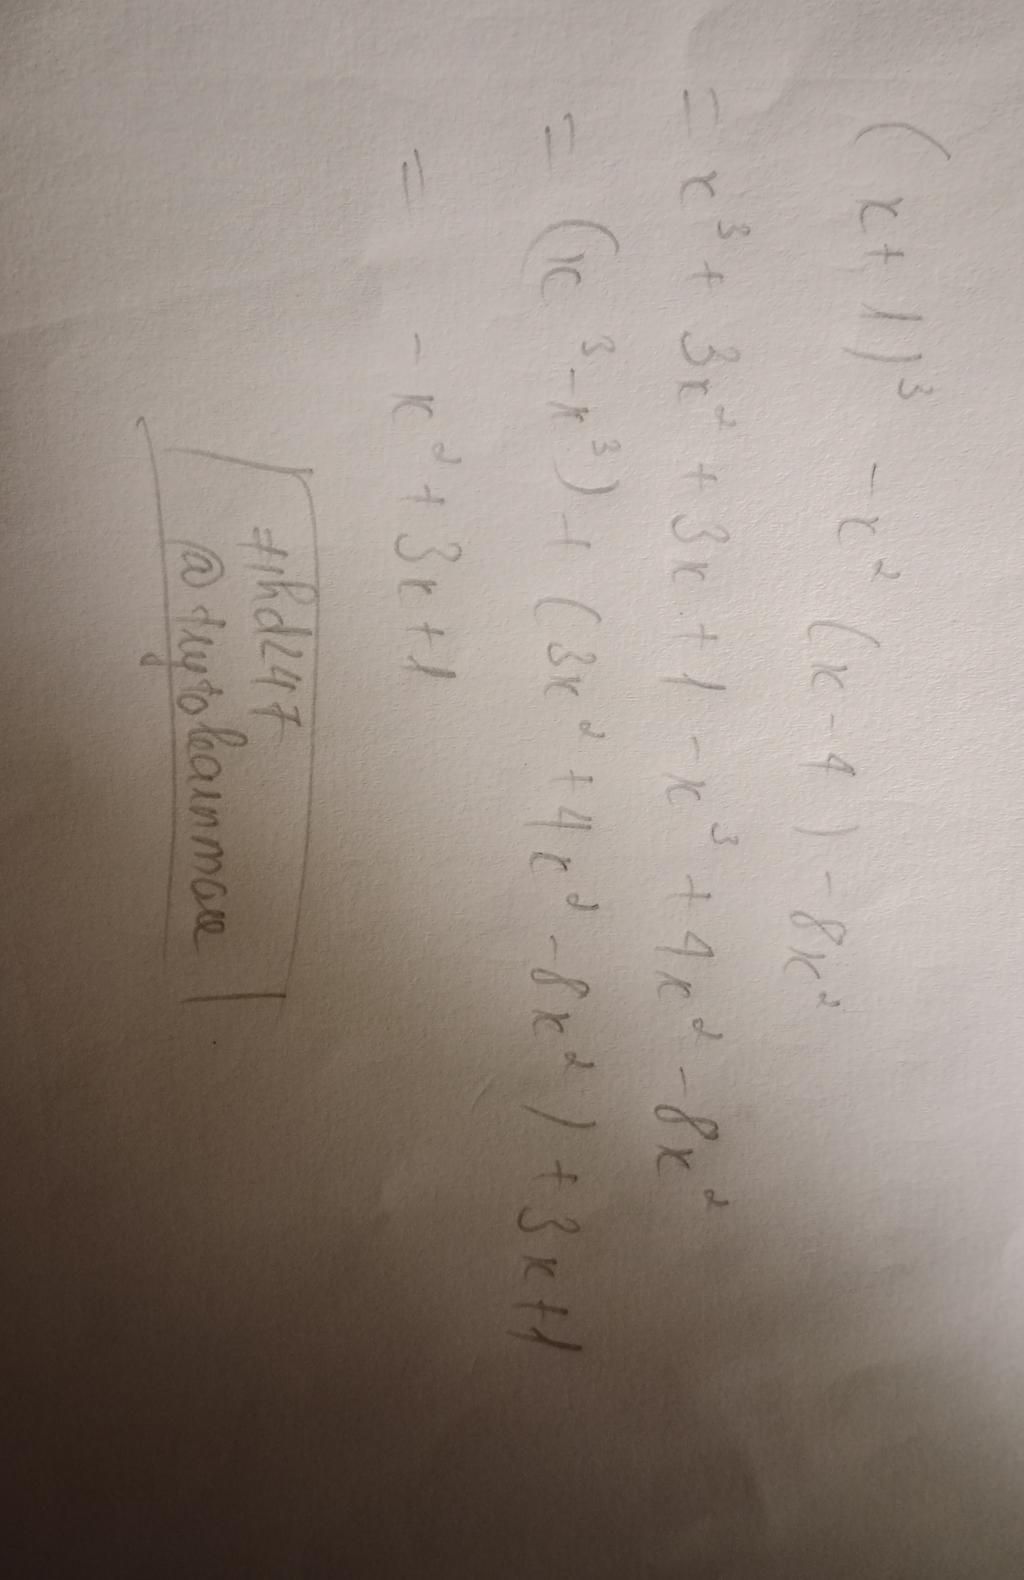 (x+1)³ -x² (x-4) -8x²
= x³ + 3x² + 3x + 1 -x³ + 4x² -8x²
= (x³-x³) + (3x² + 4x² -8x²) + 3x+1
= -x² + 3x+1
thd247
@trytolearnmore